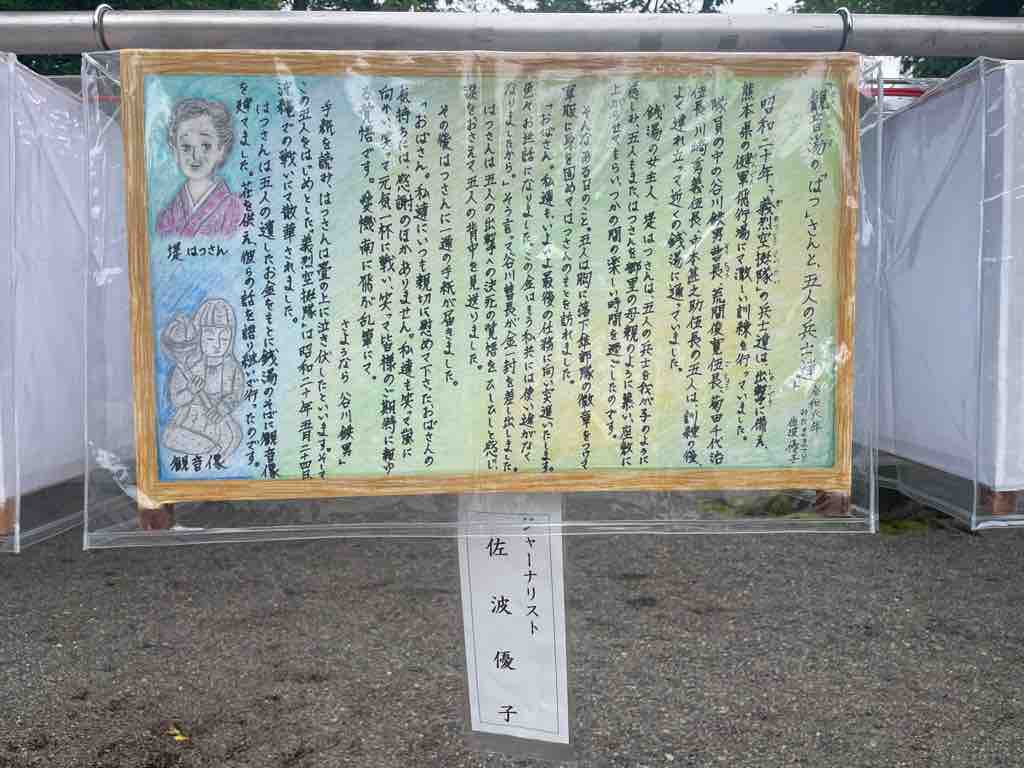 「観音湯の「はつ」さんと、五人の兵士達」
令和六年
みたままつり
佐波優子
昭和二十年、「義烈空挺隊」の兵士達は出撃に備え、
熊本県の健軍飛行場にて激しい訓練を行っていました。
隊員の中の谷川鉄男曹長、荒間俊寛伍長、菊田千代治
伍長、川崎秀義伍長、中本甚之助伍長の五人は、訓練後、
よく連れ立って近くの銭湯に通っていました。
銭湯の女主人、堤はつさんは、五人の兵士を我が子のように
慈しみ、五人もまたはつさんを郷里の母親のように慕い、座敷に
上がらせてもらいつかの間の楽しい時間を過ごしたのです。
そんなある日のこと。五人は胸に落下傘部隊の徽章をつけて
軍服に身を固めてはつさんのもとを訪れました。
「おばさん。私達も、いよいよ最後の仕務に向い突進いたします。
色々お世話になりました。このお金はもう私共には使い道がなく
なりましたから。」そう言って谷川曹長がお金一封を差し出しました。
はつさんは五人の出撃への決死の覚悟をひしひしと感じ、
涙をおさえて五人の背中を見送りました。
その後はつさんに一通の手紙が届きました。
「おばさん。私達にいつも親切に慰めて下さたおばさんの
お気持ちには感謝のほかありません。私達も笑って巣に
向かい、笑って元気一杯に戦い、笑って皆様のご期待に報ゆ
る覚悟です。愛機南に飛が乱撃にて。
さようなら 谷川鉄男」
手紙を読み、はつさんは畳の上に泣き伏したといいます。そして
この五人をはじめとした義烈空挺隊は昭和二十年五月二十四日、
沖縄での戦いにて散華されました。
はつさんは五人の遺したお金をもとに銭湯のそばに観音像
を建てました。花を供え、彼らの話を語り継いで行ったのです。
堤はつさん
観音像
ジャーナリスト
佐波優子